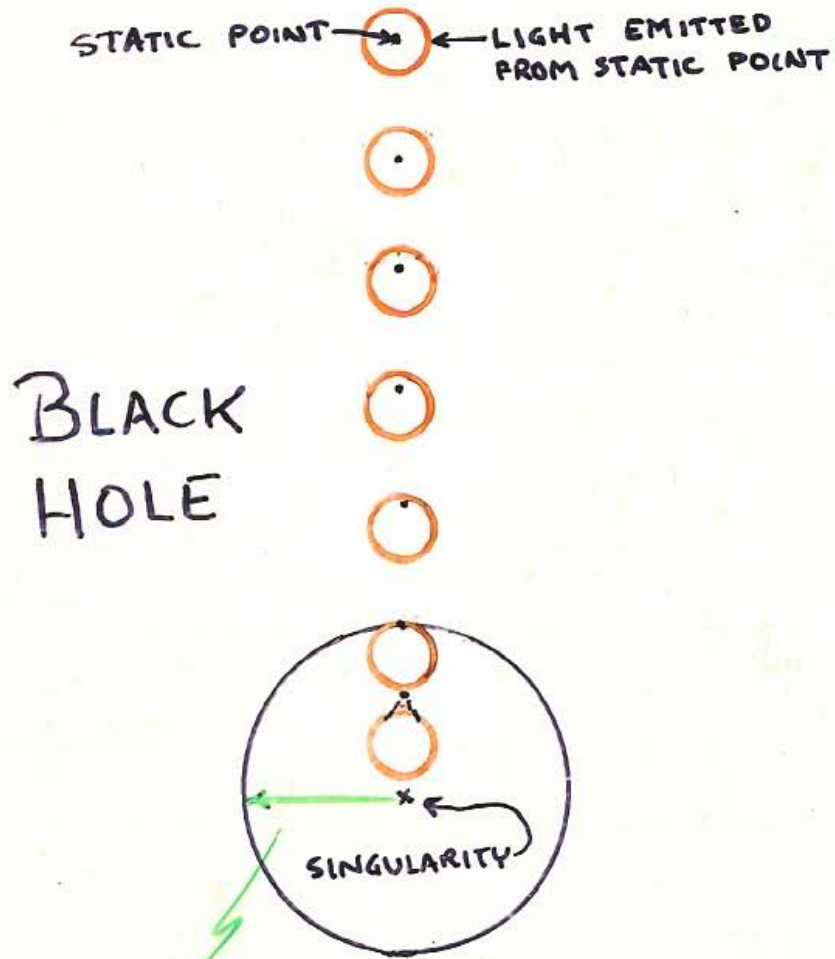 STATIC POINT
LIGHT EMITTED
FROM STATIC POINT
BLACK
HOLE
x
SINGULARITY